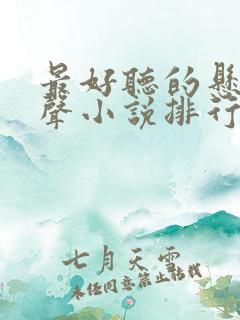 最好聽的懸
聲小說排行
七月天雲
未經同意禁止轉載